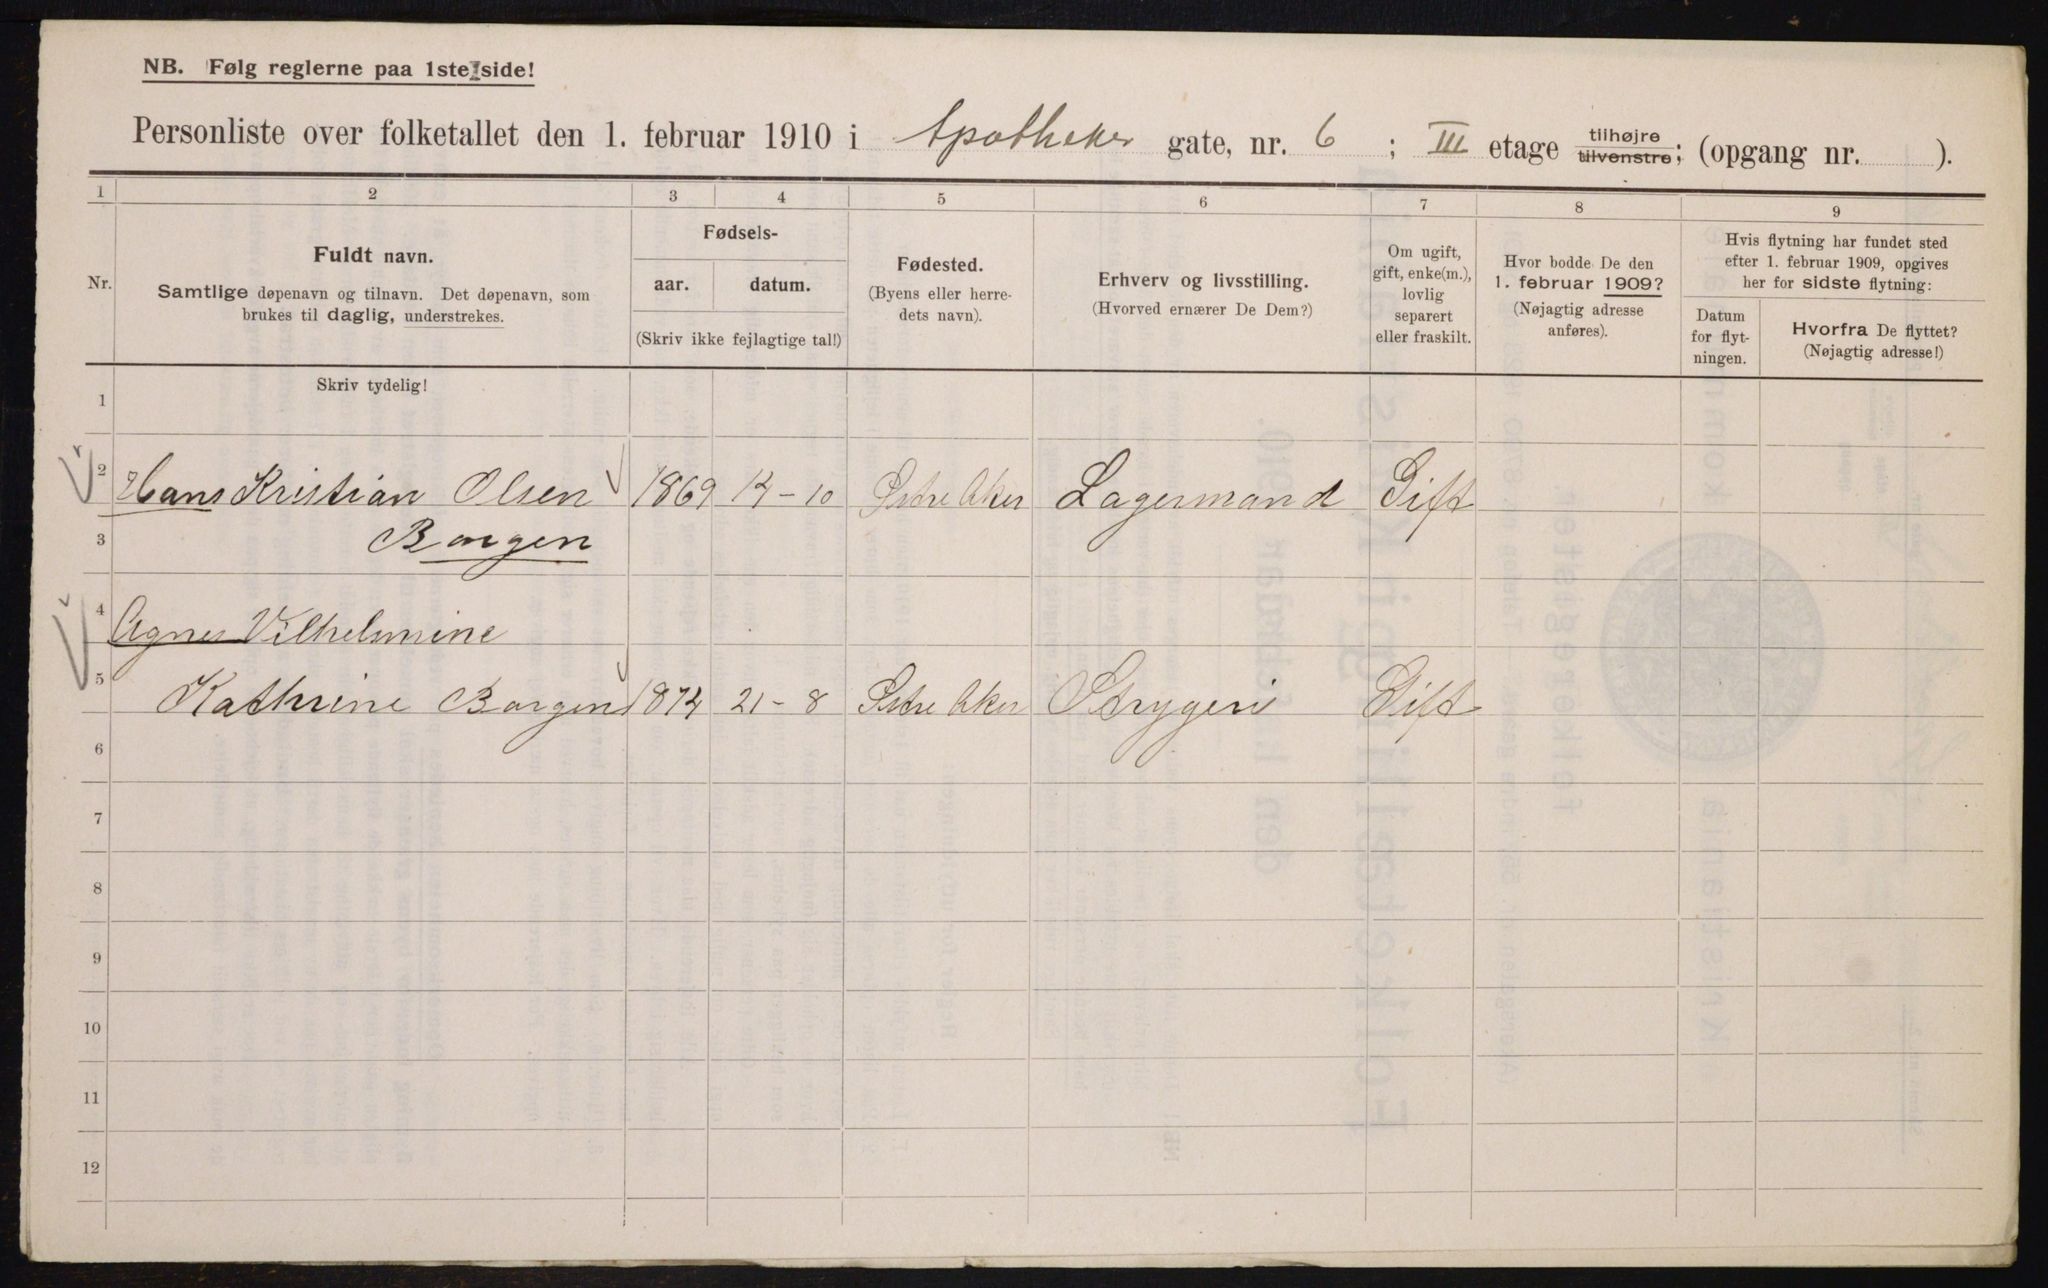 NB. Følg reglerne paa 1ste side!
Personliste over folketallet den 1. februar 1910 i Apotheker gate, nr. 6 ; III etage tilhøjre tilvenstre; (opgang nr. ).
1 2 3 4 5 6 7 8 9
Nr.
Fuldt navn.
Samtlige døpenavn og tilnavn. Det døpenavn, som
brukes til daglig, understrekes.
Fødsels-
aar. datum.
(Skriv ikke fejlagtige tal!)
Fødested.
(Byens eller herre-
dets navn).
Erhverv og livsstilling.
(Hvorved ernærer De Dem?)
Om ugift,
gift, enke(m.),
lovlig
separert
eller fraskilt.
Hvor bodde De den
1. februar 1909?
(Nøjagtig adresse
anføres).
Hvis flytning har fundet sted
efter 1. februar 1909, opgives
her for sidste flytning:
Datum
for flyt-
ningen.
Hvorfra De flyttet?
(Nøjagtig adresse!)
Skriv tydelig!
1
2 Hans Kristian Olsen 1869 14-10 Østre Aker Lagermand Gift
3 Borgen
4 Agnes Vilhelmine
5 Kathrine Borgen 1874 21-8 Østre Aker Strygeri Gift
6
7
8
9
10
11
12